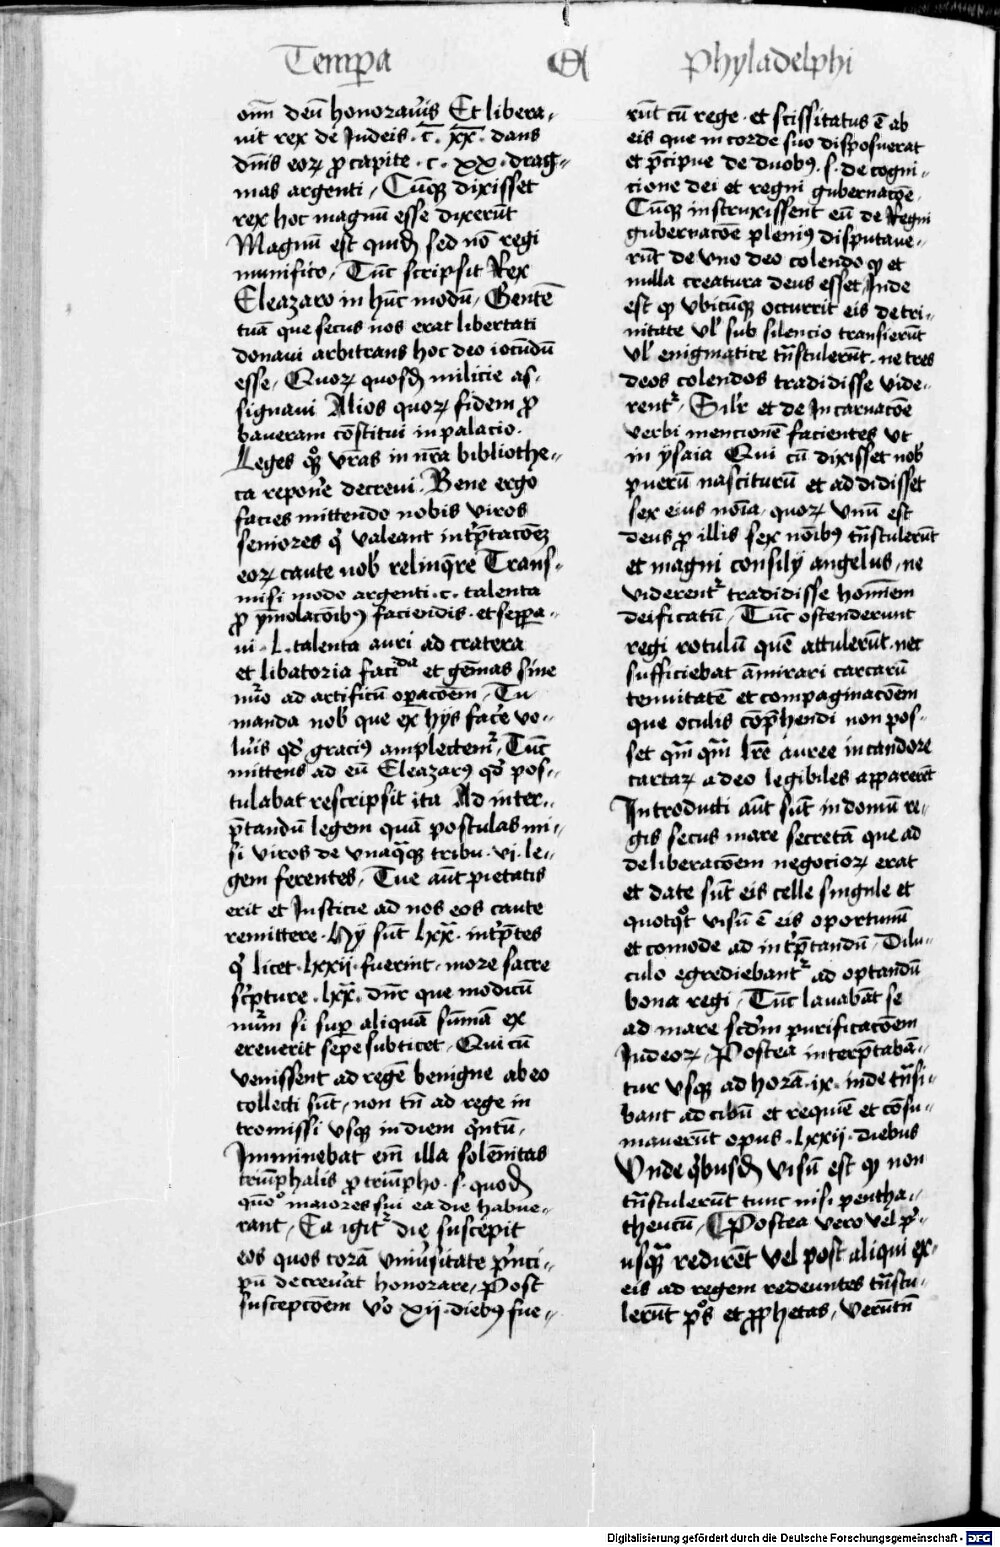 Tempa Phyladelphi
om̄ deū honorav̓is Et libera〃
uit rex de Judeis · c̄ · x̄x̄ · dans
dn̄is eoꝝ ꝓ capite · c · xx · drag〃
mas argenti / Cūqꝫ dixisset
rex hoc magnū esse dixerūt
Magnū est quidē sed nō regi
munifico / Tūc scripsit Rex
Eleazaro in hūc modū / Gentē
tuā que secus nos erat libertati
donaui arbitrans hoc deo iocūdū
esse / Quoꝝ quosdā milicie as〃
signaui Alios quoꝝ fidem ꝓ
baueram cōstitui in palacio ·
Leges qͦqꝫ vr̄as in nr̄a bibliothe〃
ca repon̓e decreui · Bene ergo
facies mittendo nobis viros
seniores qͥ valeant int̓p̄tacōeꝫ
eoꝝ caute nob̓ relinq̄re Trans〃
misi modo argenti · c · talenta
ꝓ ym̄olacōibꝰ faciendis · et seꝑa〃
ui · L · talenta auri ad cratera
et libatoria faciᵈᵃ et gēmas sine
nūo ad artificū oꝑacōem / Tu
manda nob̓ que ex hijs fac̓e vo〃
lu̓is qd̓ graciꝰ amplectemͬ / Tūc
mittens ad eū Eleazarꝰ qd̓ pos〃
tulabat rescripsit ita Ad inter〃
p̄tandū legem quā postulas mi〃
si viros de vnaq̄qꝫ tribu · vj · le〃
gem ferentes / Tue aūt pietatis
erit et Justicie ad nos eos caute
remittere · Hij sūt lxx̄ · int̓p̄tes
qͥ licet · lxxij · fuerint · more sacre
sc̓pture · lxx̄ · dn̄r que modicū
num̄ si suꝑ aliquā sūmā ex
creuerit sepe subticet / Qui cū
venissent ad regē benigne ab eo
collecti sūt / non tn̄ ad rege in
tromissi vsqꝫ in diem qͥntū /
Imminebat em̄ illa solēnitas
triūphalis ꝓ triūpho · s · quodā
quēᵒ maiores sui ea die habue〃
rant / Ea igitͬ die suscepit
eos quos corā vniu̓sitate pͥnci〃
pū decreu̓at honorare / Post
suscepcōem v̓o xij · diebꝰ fue〃
rūt cū rege · et scissitatus ē ab
eis que in corde suo disposuerat
et p̄cipue de duobꝰ · s · de cogni〃
cione dei et regni gubernacōe ·
Cūqꝫ instruxissent eū de Regni
gubernacōe pleniꝰ disputaue〃
rūt de vno deo colendo qꝫ et
nulla creatura deus esset / Inde
est qꝫ vbicūqꝫ occurrit eis de tri〃
nitate vl̓ sub silencio transierūt
vl̓ enigmatice tn̄stulerūt · ne tres
deos colendos tradidisse vide〃
rentͬ / Sil̓r et de Incarnacōe
verbi mencionē facientes vt
in ysaia Qui cū dixisset nob̓
puerū nasciturū et addidisset
sex eius noīa · quoꝝ vnū est
deus ꝓ illis sex nōibꝰ tn̄stulerūt
et magni consilij angelus / ne
viderentͬ tradidisse hominem
deificatū / Tūc ostenderunt
regi rotulū quē attulerūt · nec
sufficiebat āmirari carcarū
tenuitatē et compaginacōem
que oculis cōp̄hendi non pos〃
set qm̄ qm̄ lr̄e auree in candore
cartaꝝ adeo legibiles apparerēt
Introducti aūt sūt in domū re〃
gis secus mare secretā que ad
deliberacōem negocioꝝ erat
et date sūt eis celle singule et
quotqͦt visū ē eis oportunū
et comode ad int̓p̄tandū / Dilu〃
culo egrediebantͬ ad optandū
bona regi / Tūc lauabāt se
ad mare scd̓m purificacōem
Judeoꝝ / Postea interp̄tabā〃
tur vsqꝫ ad horā · ix · inde tn̄si〃
bant ad cibū et requiē et cōsu〃
mauerūt opus · lxxij · diebus
Vnde qͥbusdā visū est qꝫ non
tn̄stulerūt tunc nisi pentha〃
theucū / Postea vero vel pͥ〃
usquā redirēt vel post aliqui ex〃
eis ad regem redeuntes tn̄stu〃
lerūt pͦs et ꝓphetas / Verūtn̄